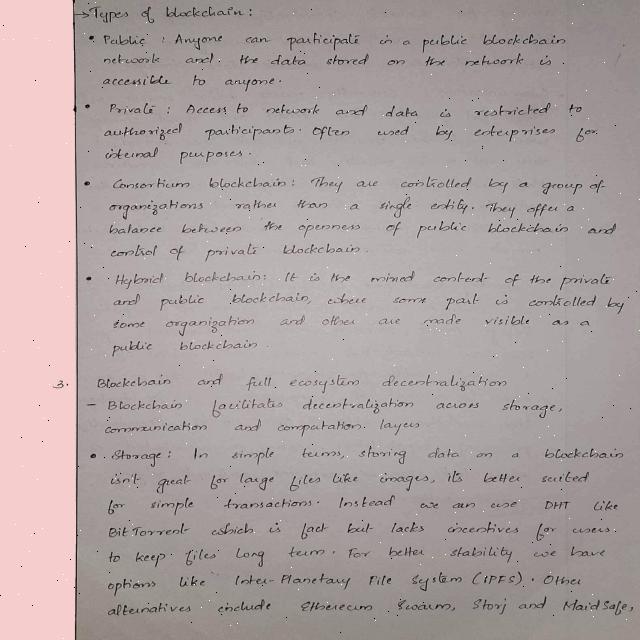 →Types of blockchain :
• Public : Anyone can participate in a public blockchain
network and the data stored on the network is
accessible to anyone.
• Private : Access to network and data is restricted to
authorized participants. Often used by enterprises for
internal purposes.
• Consortium blockchain : They are controlled by a group of
organizations rather than a single entity. They offer a
balance between the openness of public blockchain and
control of private blockchain.
• Hybrid blockchain : It is the mixed content of the private
and public blockchain, where some part is controlled by
some organization and other are made visible as a
public blockchain.
3. Blockchain and full ecosystem decentralization
- Blockchain facilitates decentralization across storage,
communication and computation layers
• Storage : In simple terms, storing data on a blockchain
isn't great for large files like images, it's better suited
for simple transactions. Instead we can use DHT like
BitTorrent which is fact but lacks incentives for users
to keep files long term. For better stability we have
options like Inter-Planetary File System (IPFS). Other
alternatives include Ethereum Swarm, Storj and MaidSafe,